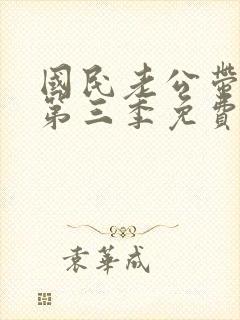 國民老公帶
第三季免費
袁華成